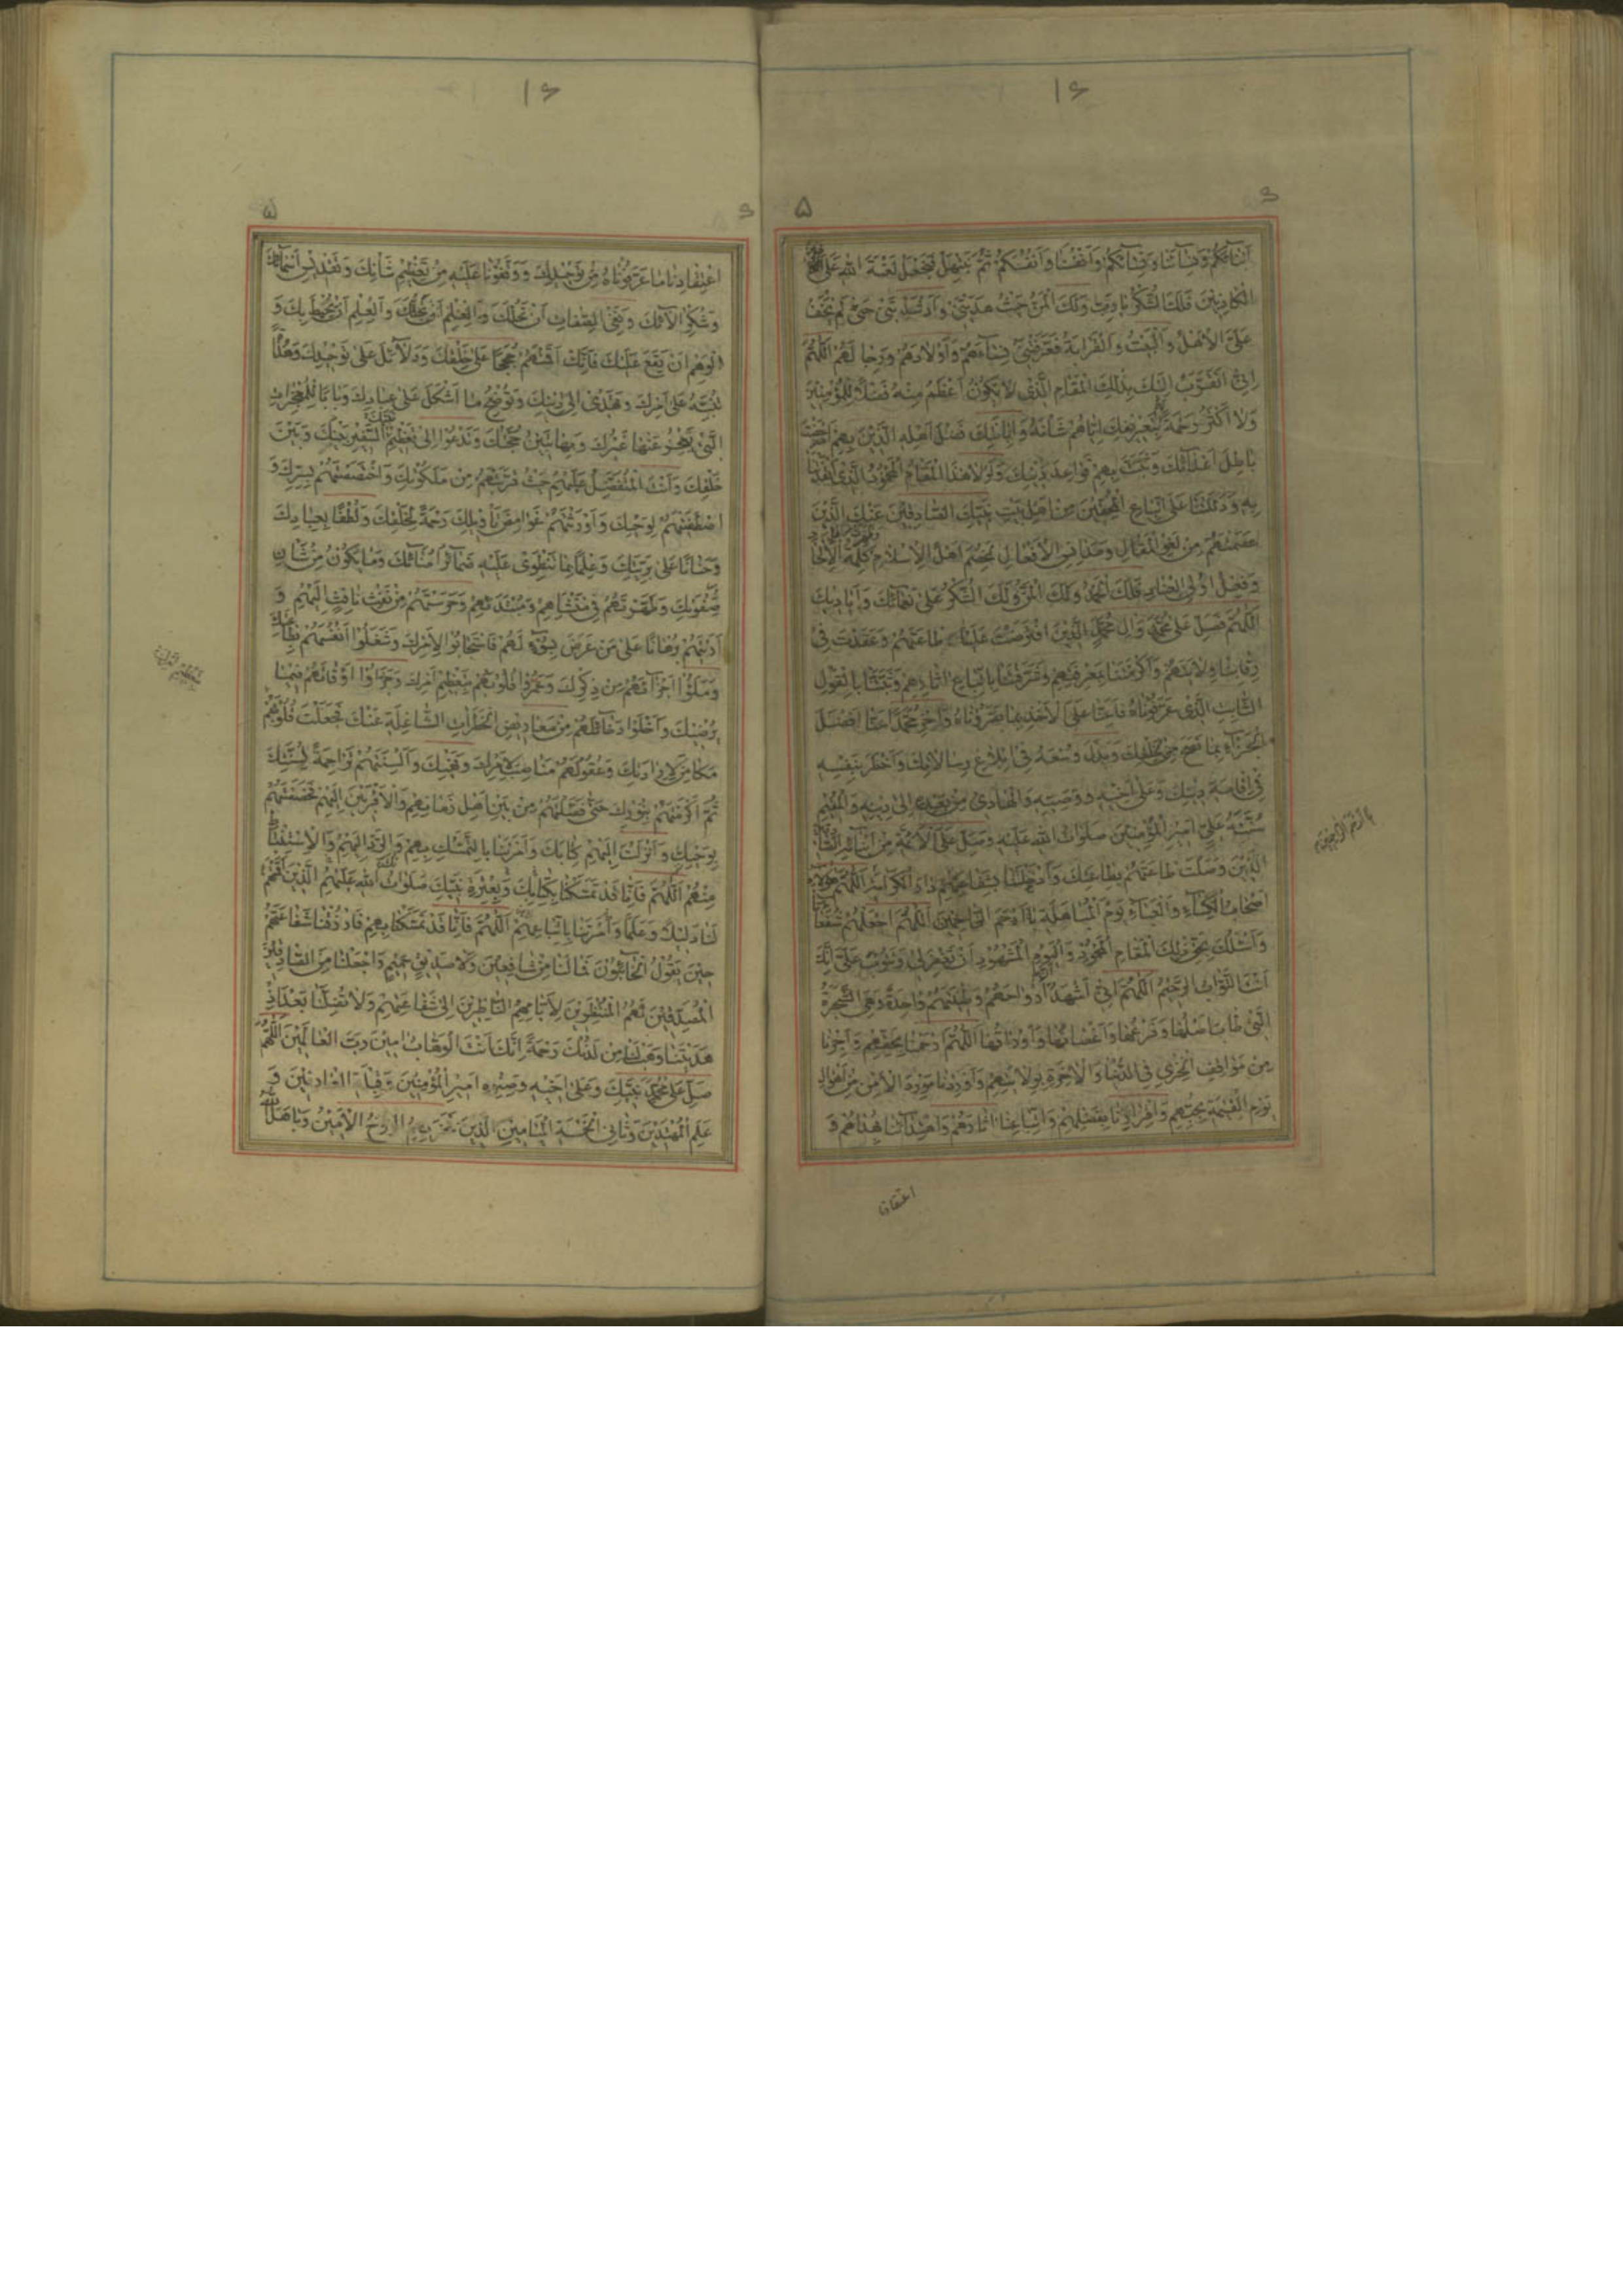 ۱۶
۵
۶
اَبْنآئَكُمْ وَنِسآئَنا وَنِسآئَكُمْ وَاَنْفُسَنا وَاَنْفُسَكُمْ ثُمَّ نَبْتَهِلْ فَنَجْعَلْ لَعْنَةَ اللهِ عَلَى
الْكاذِبينَ فَلَكَ الشُّكْرُ يا رَبِّ وَلَكَ الْمَنُّ حَيْثُ هَدَيْتَني وَاَرْشَدْتَني حَتّى لَمْ يَخْفَ
عَلَيَّ الْاَهْلُ وَالْبَيْتُ وَالْقَرابَةُ فَعَرَّفْتَني نِسآءَهُمْ وَاَوْلادَهُمْ وَرِجالَهُمْ اَللّهُمَّ
اِنّي اَتَقَرَّبُ اِلَيْكَ بِذلِكَ الْمَقامِ الَّذي لا يَكُونُ اَعْظَمُ مِنْهُ فَضْلًا لِلْمُؤْمِنينَ
وَلا اَكْثَرُ رَحْمَةً بِتَعْريفِكَ اِيّاهُمْ شَأْنَهُ وَاِبانَتِكَ فَضْلَ اَهْلِهِ الَّذينَ بِهِمْ اَدْحَضْتَ
باطِلَ اَعْدآئِكَ وَثَبَّتَّ بِهِمْ قَواعِدَ دينِكَ وَلَوْلا هذَا الْمَقامُ الْمَحْمُودُ الَّذي اَنْقَذْتَنا
بِهِ وَدَلَلْتَنا عَلَى اتِّباعِ الْمُحِقّينَ مِنْ اَهْلِ بَيْتِ نَبِيِّكَ الصّادِقينَ عَنْكَ الَّذينَ
عَصَمْتَهُمْ مِنْ لَغْوِ الْمَقالِ وَمَدانِسِ الْاَفْعالِ لَخُصِمَ اَهْلُ الْاِسْلامِ وَظَهَرَتْ كَلِمَةُ اَهْلِ الْاِلْحادِ
وَفِعْلُ اُولِي الْعِنادِ فَلَكَ الْحَمْدُ وَلَكَ الْمَنُّ وَلَكَ الشُّكْرُ عَلى نَعْمآئِكَ وَاَياديكَ
اَللّهُمَّ فَصَلِّ عَلى مُحَمَّدٍ وَالِ مُحَمَّدٍ الَّذينَ افْتَرَضْتَ عَلَيْنا طاعَتَهُمْ وَعَقَدْتَ في
رِقابِنا وِلايَتَهُمْ وَاَكْرَمْتَنا بِمَعْرِفَتِهِمْ وَشَرَّفْتَنا بِاتِّباعِ اثارِهِمْ وَثَبَّتَّنا بِالْقَوْلِ
الثّابِتِ الَّذي عَرَّفُوناهُ فَاَعِنّا عَلَى الْاَخْذِ بِما بَصَّرُوناهُ وَاجْزِ مُحَمَّدًا عَنّا اَفْضَلَ
الْجَزآءِ بِما نَصَحَ لِخَلْقِكَ وَبَذَلَ وُسْعَهُ في اِبْلاغِ رِسالاتِكَ وَاَخْطَرَ بِنَفْسِهِ
في اِقامَةِ دينِكَ وَعَلى اَخيهِ وَوَصِيِّهِ وَالْهادي مِنْ بَعْدِهِ اِلى دينِهِ وَالْقَيِّمِ
سُنَّتَهُ عَلِيٍّ اَميرِ الْمُؤْمِنينَ صَلَواتُ اللهِ عَلَيْهِ وَصَلِّ عَلَى الْاَئِمَّةِ مِنْ اَبْنآئِهِ الصّادِقينَ
الَّذينَ وَصَلْتَ طاعَتَهُمْ بِطاعَتِكَ وَاَدْخِلْنا بِشَفاعَتِهِمْ دارَ كَرامَتِكَ اَللّهُمَّ هؤُلآءِ
اَصْحابُ الْكِسآءِ وَالْعَبآءِ يَوْمَ الْمُباهَلَةِ يا اَرْحَمَ الرّاحِمينَ اَللّهُمَّ اجْعَلْهُمْ شُفَعآءَنا
وَاَسْئَلُكَ بِحَقِّ ذلِكَ الْمَقامِ الْمَحْمُودِ وَالْيَوْمِ الْمَشْهُودِ اَنْ تَغْفِرَ لي وَتَتُوبَ عَلَيَّ اِنَّكَ
اَنْتَ التَّوّابُ الرَّحيمُ اَللّهُمَّ اِنّي اُشْهِدُ اَنَّ اَرْواحَهُمْ وَطينَتَهُمْ واحِدَةٌ وَهِيَ الشَّجَرَةُ
الَّتي طابَ اَصْلُها وَفَرْعُها وَاَغْصانُها وَاَوْراقُها اَللّهُمَّ ارْحَمْنا بِحَقِّهِمْ وَاَجِرْنا
مِنْ مَواقِفِ الْخِزْيِ فِي الدُّنْيا وَالْاخِرَةِ بِوِلايَتِهِمْ وَاَوْرِدْنا مَوْرِدَ الْاَمْنِ مِنْ اَهْوالِ
يَوْمِ الْقِيمَةِ بِحُبِّهِمْ وَاِقْرارِنا بِفَضْلِهِمْ وَاتِّباعِنا اثارَهُمْ وَاهْتِدآئِنا بِهُداهُمْ وَ
اعتقادنا
۱۶
۵
۶
اعْتِقادِنا ما عَرَّفُوناهُ مِنْ تَوْحيدِكَ وَوَقَّفُونا عَلَيْهِ مِنْ تَعْظيمِ شَأْنِكَ وَتَقْديسِ اَسْمآئِكَ
وَشُكْرِ الآئِكَ وَنَفْيِ الصِّفاتِ اَنْ تَحُلَّكَ وَالْعِلْمِ اَنْ يُحيطَ بِكَ وَ
الْوَهْمِ اَنْ يَقَعَ عَلَيْكَ فَاِنَّكَ اَقَمْتَهُمْ حُجَجًا عَلى خَلْقِكَ وَدَلآئِلَ عَلى تَوْحيدِكَ وَهُداةً
تُنَبِّهُ عَلى اَمْرِكَ وَتَهْدي اِلى دينِكَ وَتُوضِحُ ما اَشْكَلَ عَلى عِبادِكَ وَبابًا لِلْمُعْجِزاتِ
الَّتي يَعْجِزُ عَنْها غَيْرُكَ وَبِها تَبينُ حُجَّتُكَ وَتَدْعُو اِلى تَعْظيمِ السَّفيرِ بَيْنَكَ وَبَيْنَ
خَلْقِكَ وَاَنْتَ الْمُتَفَضِّلُ عَلَيْهِمْ حَيْثُ قَرَّبْتَهُمْ مِنْ مَلَكُوتِكَ وَاخْتَصَصْتَهُمْ بِسِرِّكَ وَ
اصْطَفَيْتَهُمْ لِوَحْيِكَ وَاَوْرَثْتَهُمْ غَوامِضَ تَأْويلِكَ رَحْمَةً لِخَلْقِكَ وَلُطْفًا بِعِبادِكَ
وَحَنانًا عَلى بَرِيَّتِكَ وَعِلْمًا بِما تَنْطَوي عَلَيْهِ ضَمآئِرُ اُمَنآئِكَ وَما يَكُونُ مِنْ شَأْنِ
صَفْوَتِكَ وَطَهَّرْتَهُمْ في مَنْشَاِهِمْ وَمُبْتَدَئِهِمْ وَحَرَسْتَهُمْ مِنْ نَفْثِ نافِثٍ اِلَيْهِمْ وَ
اَرَيْتَهُمْ بُرْهانًا عَلى مَنْ عَرَضَ بِسُوءٍ لَهُمْ فَاسْتَجابُوا لِاَمْرِكَ وَشَغَلُوا اَنْفُسَهُمْ بِطاعَتِكَ
وَمَلَؤُا اَجْزآئَهُمْ مِنْ ذِكْرِكَ وَعَمَرُوا قُلُوبَهُمْ بِتَعْظيمِ اَمْرِكَ وَجَزَّاُوا اَوْقاتَهُمْ فيما
يُرْضيكَ وَاَخْلَوْا دَخآئِلَهُمْ مِنْ مَعاريضِ الْخَطَراتِ الشّاغِلَةِ عَنْكَ فَجَعَلْتَ قُلُوبَهُمْ
مَكامِنَ لِاِرادَتِكَ وَعُقُولَهُمْ مَناصِبَ لِاَمْرِكَ وَنَهْيِكَ وَاَلْسِنَتَهُمْ تَراجِمَةً لِسُنَّتِكَ
ثُمَّ اَكْرَمْتَهُمْ بِنُورِكَ حَتّى فَضَّلْتَهُمْ مِنْ بَيْنِ اَهْلِ زَمانِهِمْ وَالْاَقْرَبينَ اِلَيْهِمْ فَخَصَصْتَهُمْ
بِوَحْيِكَ وَاَنْزَلْتَ اِلَيْهِمْ كِتابَكَ وَاَمَرْتَنا بِالتَّمَسُّكِ بِهِمْ وَالرَّدِّ اِلَيْهِمْ وَالْاِسْتِنْباطِ
مِنْهُمْ اَللّهُمَّ فَاِنّا قَدْ تَمَسَّكْنا بِكِتابِكَ وَبِعِتْرَةِ نَبِيِّكَ صَلَواتُ اللهِ عَلَيْهِمُ الَّذينَ اَقَمْتَهُمْ
لَنا دَليلًا وَعَلَمًا وَاَمَرْتَنا بِاتِّباعِهِمْ اَللّهُمَّ فَاِنّا قَدْ تَمَسَّكْنا بِهِمْ فَارْزُقْنا شَفاعَتَهُمْ
حينَ يَقُولُ الْخآئِبُونَ فَما لَنا مِنْ شافِعينَ وَلا صَديقٍ حَميمٍ وَاجْعَلْنا مِنَ الصّادِقينَ
الْمُصَدِّقينَ لَهُمُ الْمُنْتَظِرينَ لِاَيّامِهِمُ النّاظِرينَ اِلى شَفاعَتِهِمْ وَلا تُضِلَّنا بَعْدَ اِذْ
هَدَيْتَنا وَهَبْ لَنا مِنْ لَدُنْكَ رَحْمَةً اِنَّكَ اَنْتَ الْوَهّابُ امينَ رَبَّ الْعالَمينَ اَللّهُمَّ
صَلِّ عَلى مُحَمَّدٍ نَبِيِّكَ وَعَلى اَخيهِ وَصِهْرِهِ اَميرِ الْمُؤْمِنينَ وَقِبْلَةِ الْعارِفينَ وَ
عَلَمِ الْمُهْتَدينَ وَثانِي الْخَمْسَةِ الْمَيامينِ الَّذينَ فَخَرَ بِهِمُ الرُّوحُ الْاَمينُ وَباهَلَ اللهُ